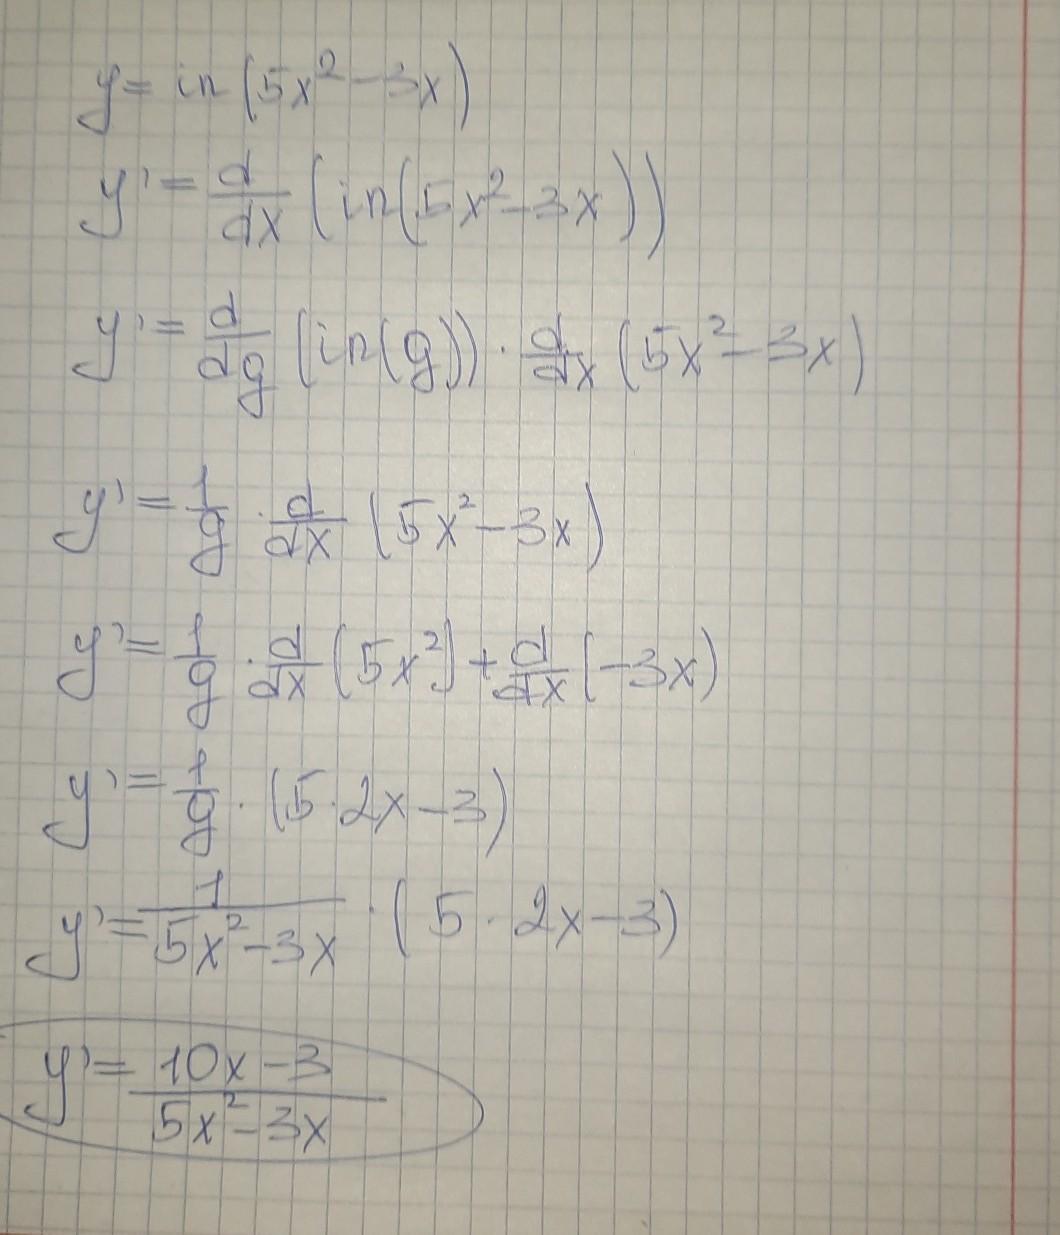 y = in (5x² - 3x)
y' = d/dx (in(5x² - 3x))
y' = d/dg (in(g)) · d/dx (5x² - 3x)
y' = 1/g · d/dx (5x² - 3x)
y' = 1/g · d/dx (5x²) + d/dx (-3x)
y' = 1/g · (5 · 2x - 3)
y' = 1/(5x² - 3x) · (5 · 2x - 3)
y' = (10x - 3)/(5x² - 3x)